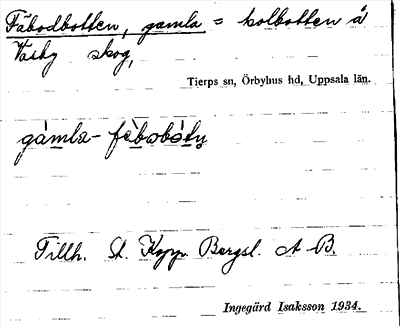 Fäbodbotten, gamla = kolbotten å
skog,
Tierps sn, Örbyhus hd, Uppsala län.
gàmla-
Tillh. St. Kopp. Bergsl. A-B.
Ingegärd Isaksson 1934.